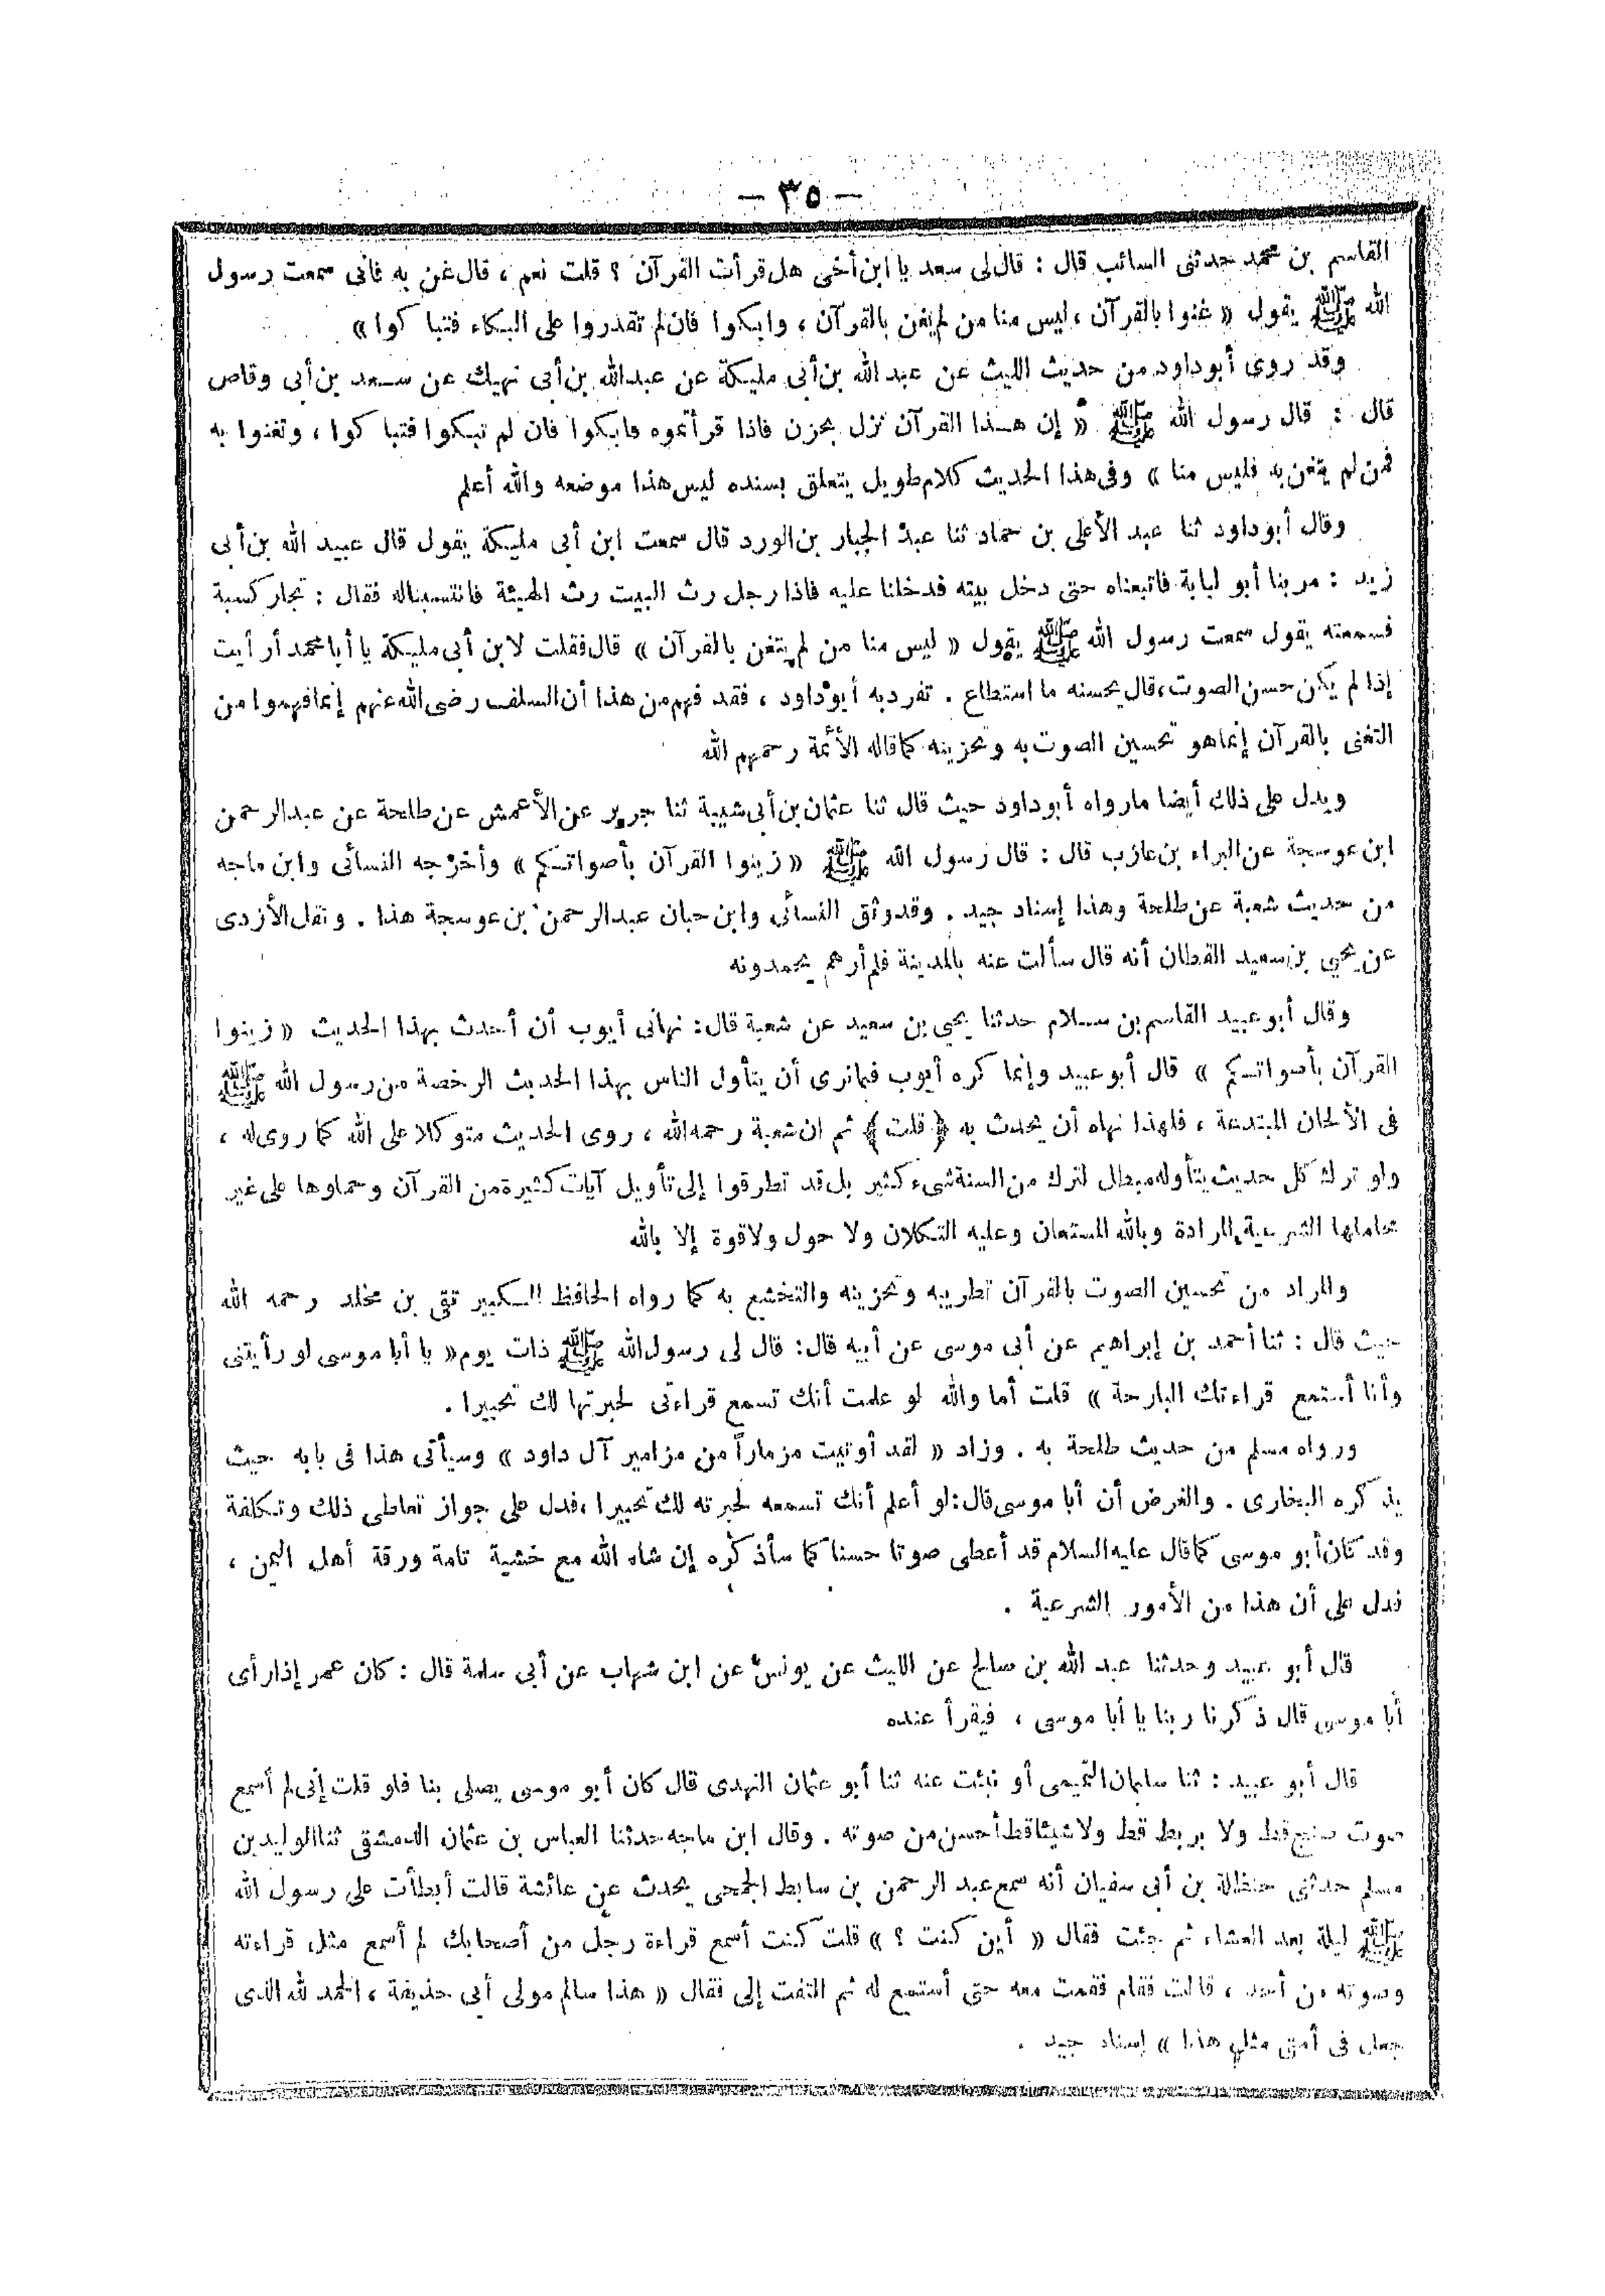 — ٣٥ —
القاسم بن محمد حدثنى السائب قال : قال لى سعد يا ابن أخى هل قرأت القرآن ؟ قلت نعم ، قال غن به فانى سمعت رسول
الله ﷺ يقول « غنوا بالقرآن ، ليس منا من لم يغن بالقرآن ، وابكوا فان لم تقدروا على البكاء فتبا كوا »
وقد روى أبو داود من حديث الليث عن عبد الله بن أبى مليكة عن عبد الله بن أبى نهيك عن سعد بن أبى وقاص
قال : قال رسول الله ﷺ « إن هذا القرآن نزل بحزن فاذا قرأتموه فابكوا فان لم تبكوا فتبا كوا ، وتغنوا به
فمن لم يتغن به فليس منا » وفى هذا الحديث كلام طويل يتعلق بسنده ليس هذا موضعه والله أعلم
وقال أبو داود ثنا عبد الأعلى بن حماد ثنا عبد الجبار بن الورد قال سمعت ابن أبى مليكة يقول قال عبيد الله بن أبى
زيد : مر بنا أبو لبابة فاتبعناه حتى دخل بيته فدخلنا عليه فاذا رجل رث البيت رث الهيئة فانتسبناله فقال : تجار كسبة
فسمعته يقول سمعت رسول الله ﷺ يقول « ليس منا من لم يتغن بالقرآن » قال فقلت لابن أبى مليكة يا أبا محمد أرأيت
إذا لم يكن حسن الصوت ، قال يحسنه ما استطاع . تفرد به أبو داود ، فقد فهم من هذا أن السلف رضى الله عنهم إنما فهموا من
التغنى بالقرآن إنما هو تحسين الصوت به وتحزينه كما قاله الأئمة رحمهم الله
ويدل على ذلك أيضا ما رواه أبو داود حيث قال ثنا عثمان بن أبى شيبة ثنا جرير عن الأعمش عن طلحة عن عبد الرحمن
ابن عوسجة عن البراء بن عازب قال : قال رسول الله ﷺ « زينوا القرآن بأصواتكم » وأخرجه النسائى وابن ماجه
من حديث شعبة عن طلحة وهذا إسناد جيد . وقد وثق النسائى وابن حبان عبد الرحمن بن عوسجة هذا . ونقل الأزدى
عن يحيى بن سعيد القطان أنه قال سألت عنه بالمدينة فلم أرهم يحمدونه
وقال أبو عبيد القاسم بن سلام حدثنا يحيى بن سعيد عن شعبة قال : نهانى أيوب أن أحدث بهذا الحديث « زينوا
القرآن بأصواتكم » قال أبو عبيد وإنما كره أيوب فيما نرى أن يتأول الناس بهذا الحديث الرخصة من رسول الله ﷺ
فى الألحان المبتدعة ، فلهذا نهاه أن يحدث به ﴿ قلت ﴾ ثم ان شعبة رحمه الله ، روى الحديث متوكلا على الله كما روى له ،
ولو ترك كل حديث يتأوله مبطل لترك من السنة شىء كثير بل قد تطرقوا إلى تأويل آيات كثيرة من القرآن وحملوها على غير
محاملها الشرعية المرادة وبالله المستعان وعليه التكلان ولا حول ولا قوة إلا بالله
والمراد من تحسين الصوت بالقرآن تطريبه وتحزينه والتخشع به كما رواه الحافظ الكبير تقى بن مخلد رحمه الله
حيث قال : ثنا أحمد بن إبراهيم عن أبى موسى عن أبيه قال : قال لى رسول الله ﷺ ذات يوم « يا أبا موسى لو رأيتنى
وأنا أستمع قراءتك البارحة » قلت أما والله لو علمت أنك تسمع قراءتى لحبرتها لك تحبيرا .
ورواه مسلم من حديث طلحة به . وزاد « لقد أوتيت مزماراً من مزامير آل داود » وسيأتى هذا فى بابه حيث
يذ كره البخارى . والغرض أن أبا موسى قال : لو أعلم أنك تسمعه لحبرته لك تحبيرا ، فدل على جواز تعاطى ذلك وتكلفة
وقد كان أبو موسى كما قال عليه السلام قد أعطى صوتا حسنا كما سأذ كره إن شاء الله مع خشية تامة ورقة أهل اليمن ،
فدل على أن هذا من الأمور الشرعية .
قال أبو عبيد وحدثنا عبد الله بن صالح عن الليث عن يونس عن ابن شهاب عن أبى سلمة قال : كان عمر إذا رأى
أبا موسى قال ذكرنا ربنا يا أبا موسى ، فيقرأ عنده
قال أبو عبيد : ثنا سليمان التيمى أو نبئت عنه ثنا أبو عثمان النهدى قال كان أبو موسى يصلى بنا فلو قلت إنى لم أسمع
صوت صنج قط ولا بربط قط ولا شيئا قط أحسن من صوته . وقال ابن ماجه حدثنا العباس بن عثمان الدمشقى ثنا الوليد بن
مسلم حدثنى حنظلة بن أبى سفيان أنه سمع عبد الرحمن بن سابط الجمحى يحدث عن عائشة قالت أبطأت على رسول الله
ﷺ ليلة بعد العشاء ثم جئت فقال « أين كنت ؟ » قلت كنت أسمع قراءة رجل من أصحابك لم أسمع مثل قراءته
وصوته من أحد ، قالت فقام فقمت معه حتى أستمع له ثم التفت إلى فقال « هذا سالم مولى أبى حذيفة ، الحمد لله الذى
جعل فى أمتى مثل هذا » إسناد جيد .